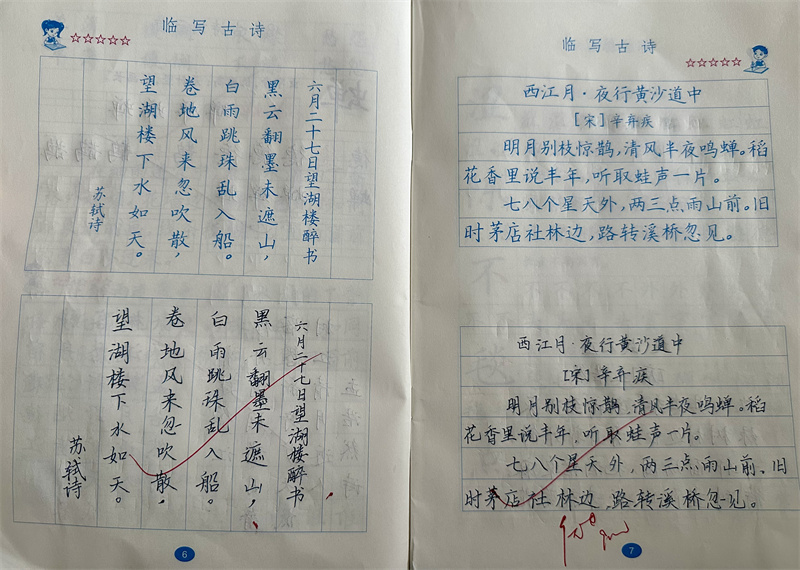 临写古诗
六月二十七日望湖楼醉书
黑云翻墨未遮山，
白雨跳珠乱入船。
卷地风来忽吹散，
望湖楼下水如天。
苏轼诗
六月二十七日望湖楼醉书
黑云翻墨未遮山，
白雨跳珠乱入船。
卷地风来忽吹散，
望湖楼下水如天。
苏轼诗
6
临写古诗
西江月·夜行黄沙道中
[宋]辛弃疾
明月别枝惊鹊，清风半夜鸣蝉。稻
花香里说丰年，听取蛙声一片。
七八个星天外，两三点雨山前。旧
时茅店社林边，路转溪桥忽见。
西江月·夜行黄沙道中
[宋]辛弃疾
明月别枝惊鹊，清风半夜鸣蝉。稻
花香里说丰年，听取蛙声一片。
七八个星天外，两三点雨山前、旧
时茅店社林边，路转溪桥忽见。
7